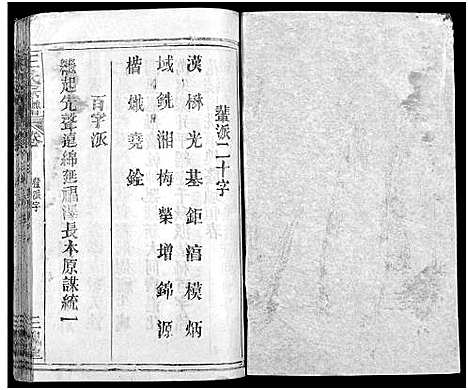 輩派二十字
漢楙光基鉅湻模炳
域銑湘梅榮增錦源
楷熾堯銓
百字派
繼起先聲遠綿延福澤長本原謀統一
王氏宗譜
卷
輩派字
三槐堂